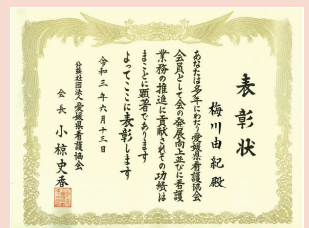 表彰状
梅川由紀殿
あなたは多年にわたり愛媛県看護協会
会員として会の発展向上並びに看護
業務の推進に貢献されその功績は
まことに顕著であります
よってここに表彰します
令和三年六月十三日
公益社団法人愛媛県看護協会
会長 小椋史香